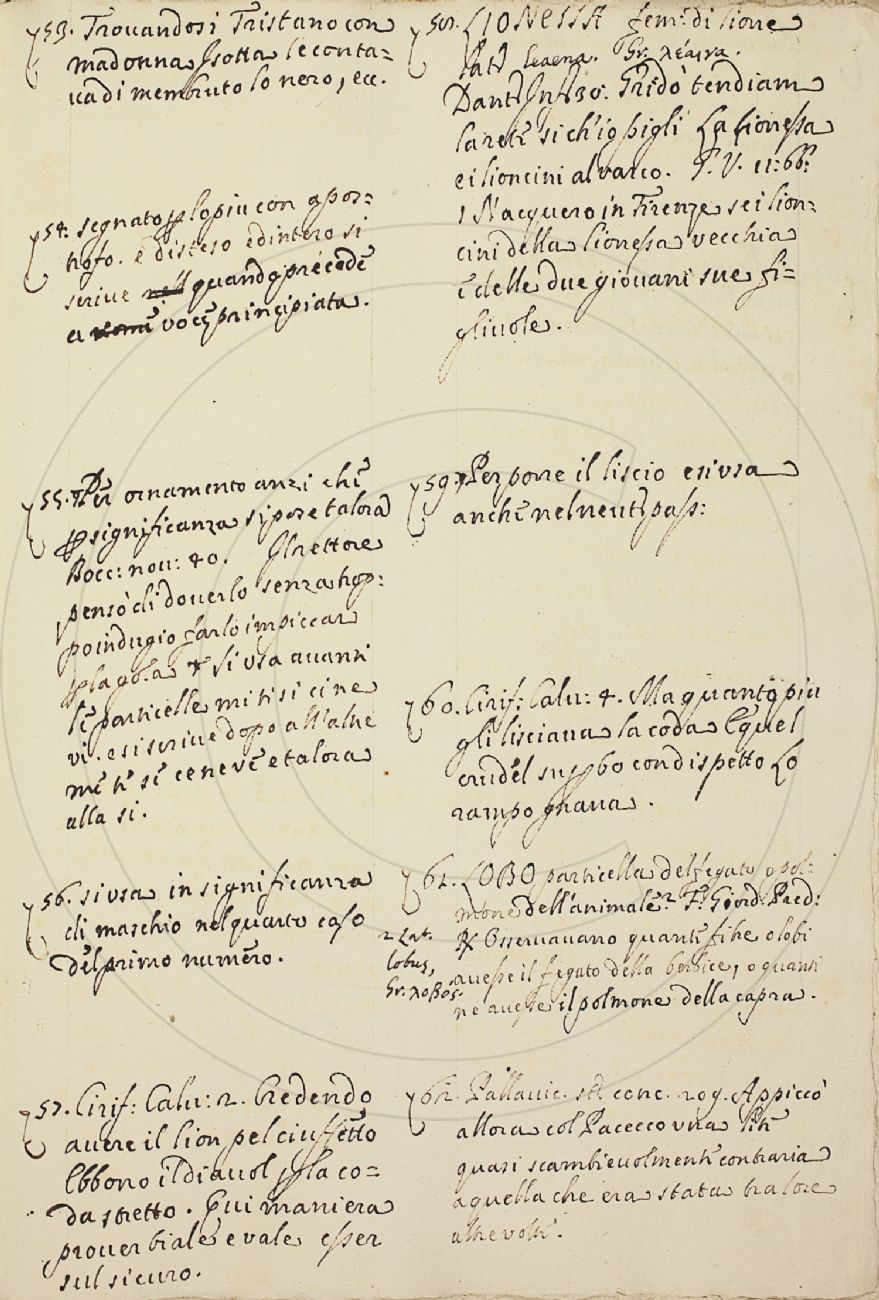 53. Trovandosi Tristano con
madonna Isotta le conta=
va di membruto lo nero, ecc.
54. segnato plopiu con apos=
trofo. e disteso ed intero si
scrive nell quando precede
a nome voce principiata.
55. Per ornamento anzi che
p significanza si pone talora
Bocc: nov: 40. Il rettore
pensò di doverlo senza trop:
po indugio farlo impiccar
p la gola. Si usa avanti
le particelle mi ti si ci ne
vi. e si scrive dopo all'altre
me te se ce ne ve e talora
alla si.
56. si usa in significanza
di maschio nel quarto caso
del primo numero.
57. Cirif: Calv: 2. Credendo
avere il lion pel ciuffetto
Ebbono il diavol p la co=
da stretto. Qui maniera
proverbiale e vale esser
sul sicuro.
58. LIONESSA fem: di lione
lat: leaena. Gr. λέαινα.
Dant: Inf: 30. Gridò tendiam
la rete si ch'io pigli La lionessa
e i lioncini al varco. G. V. 11: 66:
1 Nacquero in Firenze sei lion=
cini della lionessa vecchia
e delle due giovani sue fi=
gliuole.
59. Per porre il liscio e si usa
anche nel neut: pass:
60. Cirif: Calv: 4. Ma quanto piu
gli lisciava la coda E quel
crudel superbo con dispetto Lo
rampognava.
61. LOBO particella del fegato o pol=
mone dell'animale. 2 F: Giord: Pred:
R Osservavano quante fibre o lobi
avesse il fegato della berbice, o quanti
ne avesse il polmone della capra.
2 Lat.
lobus,
Gr. λοβός.
62. Pallavic. st: conc. 209. Appiccò
allora col Pacecco una lite
quasi scambievolmente contraria
a quella che era stata tra loro
altre volte.